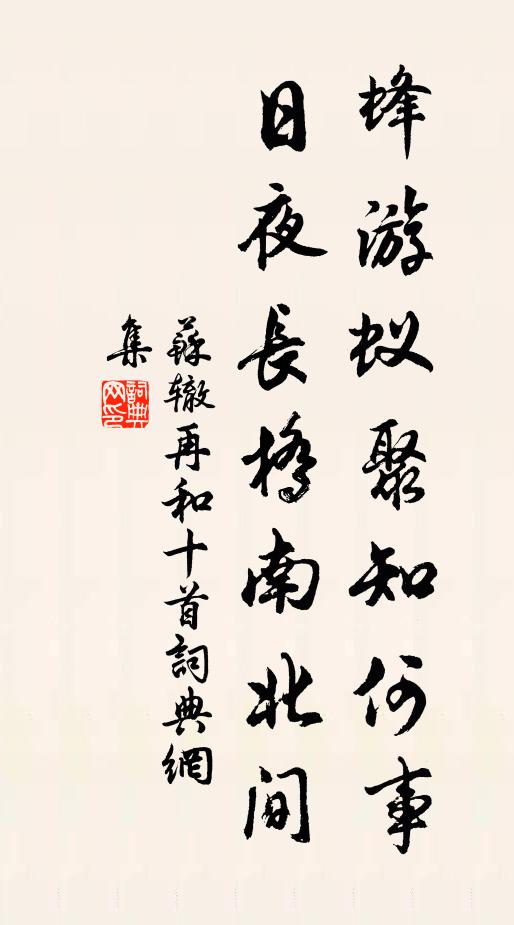 蜂游蚁聚知何事
日夜長橋南北间
蘇辙再和十首詞典網
集
詞典网印